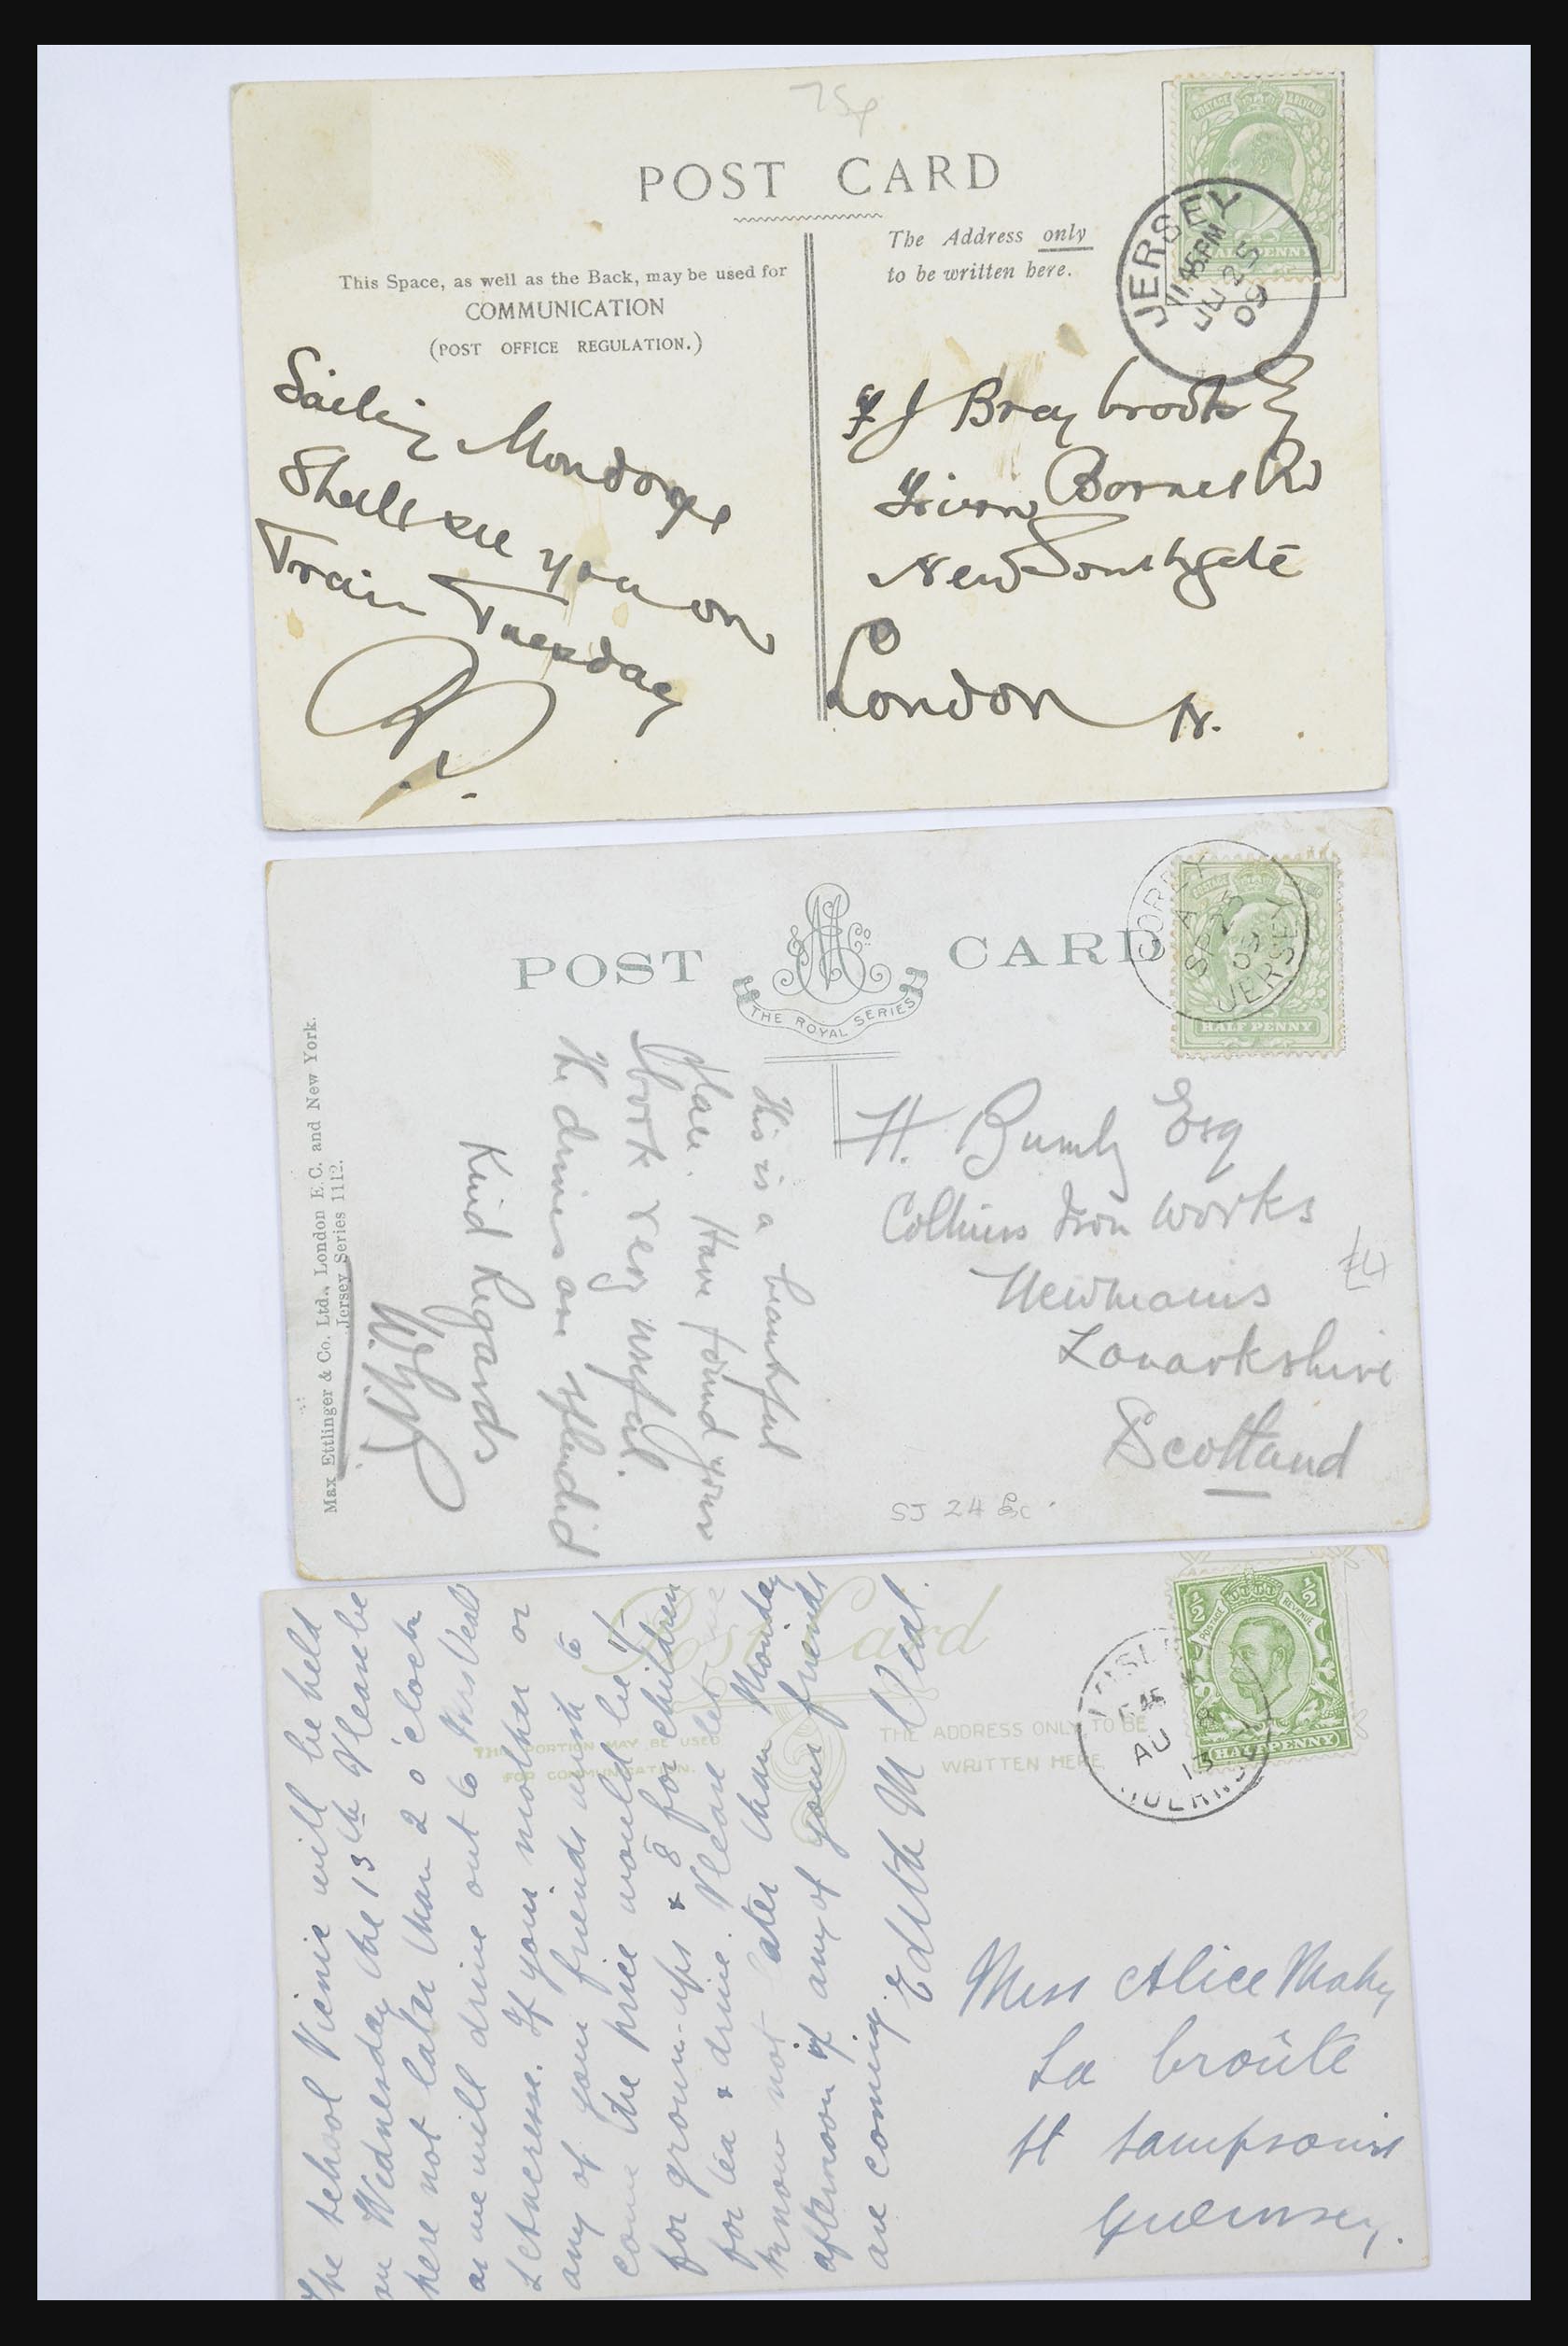 75p
POST CARD
The Address only
to be written here.
This Space, as well as the Back, may be used for
COMMUNICATION
(POST OFFICE REGULATION.)
POSTAGE REVENUE
HALFPENNY
JERSEY
11.45PM
JU 25
09
Sailing Monday
Shall see you on
Train Tuesday
J Braybrooke
Barnet Rd
New Southgate
London N.
POST CARD
& Co.
THE ROYAL SERIES
POSTAGE REVENUE
HALF PENNY
GOREY
A
SP 25
05
JERSEY
Max Ettlinger & Co. Ltd., London E.C. and New York.
Jersey Series 1112.
This is a beautiful
place. Have found your
Book very useful.
The drives are splendid
Kind Regards
H. Bumby Esq
Coltness Iron Works
Newmains
Lanarkshire
Scotland
£4
SJ 24
Post Card
THIS PORTION MAY BE USED
FOR COMMUNICATION.
THE ADDRESS ONLY TO BE
WRITTEN HERE
½ ½
POSTAGE REVENUE
HALFPENNY
AU 8
13
The School Picnic will be held
on Wednesday the 13th Please be
here not later than 2 o'clock
as we will drive out to
L'Etacresse. If your mother or
any of your friends wish to
come the price would be 1/-
for grown-ups & 8 for children
for tea & drive. Please let me
know not later than Monday
afternoon if any of your friends
are coming.
Edith M Veal.
Miss Alice Mahy
La broûte
St Sampson's
Guernsey.